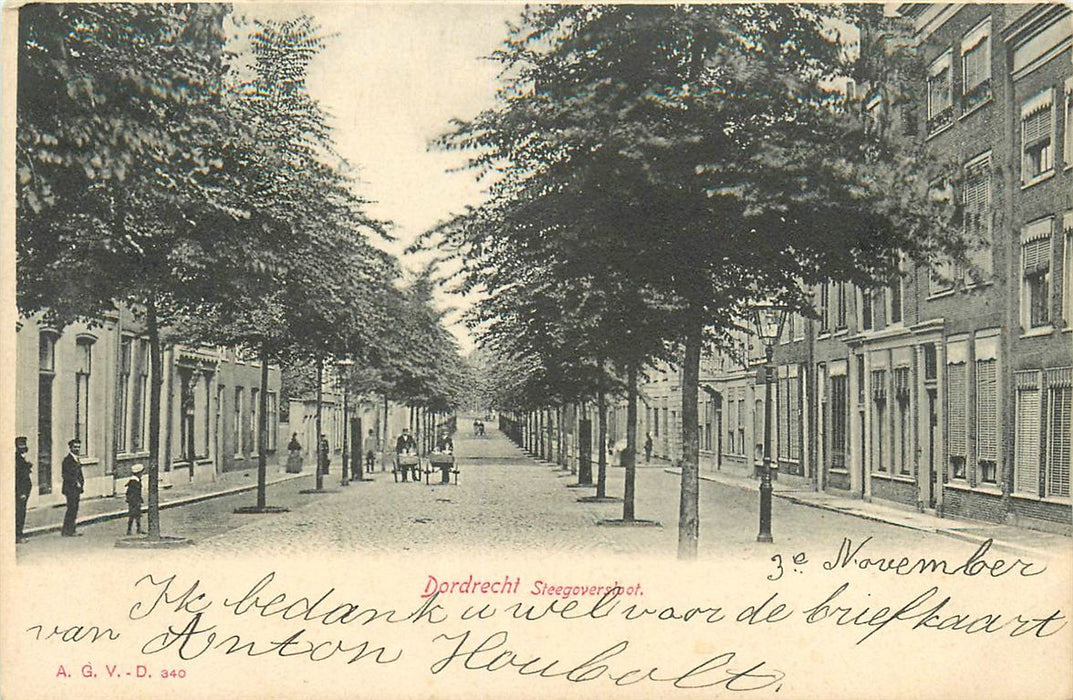 Dordrecht Steegoversloot.
3e November
Ik bedank u wel voor de briefkaart
van Anton Houbolt.
A. G. V. - D. 340